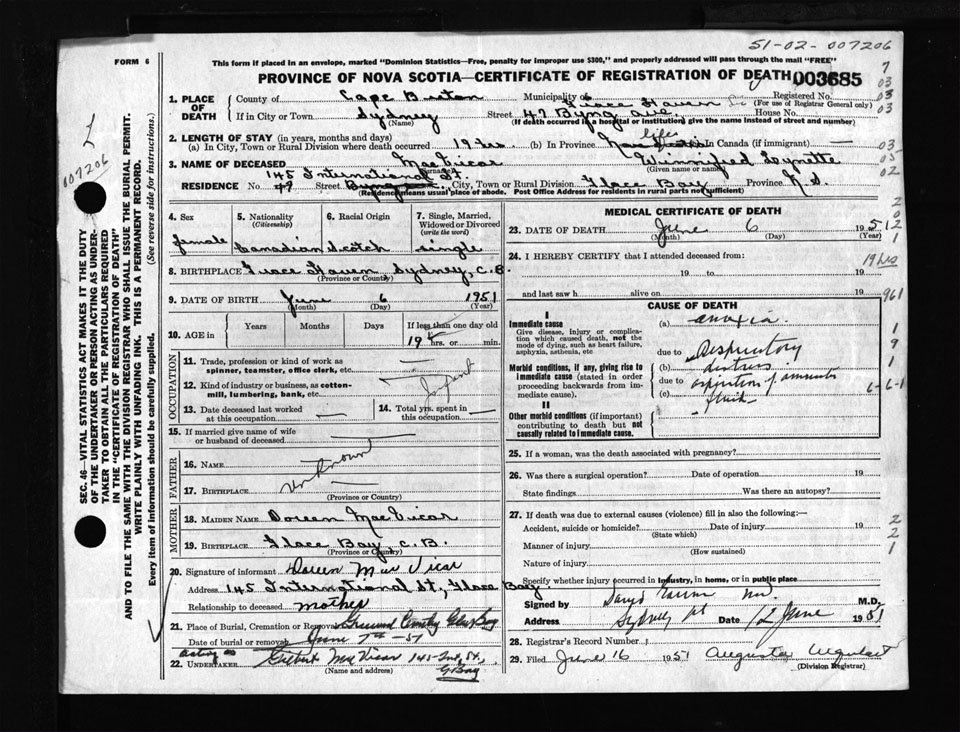 51-02-007206
FORM 6 This form if placed in an envelope, marked "Dominion Statistics—Free, penalty for improper use $300," and properly addressed will pass through the mail "FREE"
PROVINCE OF NOVA SCOTIA—CERTIFICATE OF REGISTRATION OF DEATH 003685
1. PLACE OF DEATH County of Cape Breton Municipality of Grace Haven Registered No.
(For use of Registrar General only)
If in City or Town Sydney (Name) Street 47 Byng Ave. House No.
(If death occurred in a hospital or institution) give the name instead of street and number)
2. LENGTH OF STAY (in years, months and days)
(a) In City, Town or Rural Division where death occurred 19 hrs. (b) In Province life Nova Scotia In Canada (if immigrant) —
3. NAME OF DECEASED MacVicar (Surname) Winnifred Lynette (Given name or names)
145 International St.
RESIDENCE No. 47 Street Byng Ave. City, Town or Rural Division Glace Bay Province N.S.
(Residence means usual place of abode. Post Office Address for residents in rural parts not sufficient)
4. Sex female
5. Nationality (Citizenship) Canadian
6. Racial Origin Scotch
7. Single, Married, Widowed or Divorced (write the word) single
8. BIRTHPLACE Grace Haven, Sydney, C.B.
(Province or Country)
9. DATE OF BIRTH June (Month) 6 (Day) 1951 (Year)
10. AGE in Years Months Days If less than one day old
19 hrs. or min.
OCCUPATION
11. Trade, profession or kind of work as spinner, teamster, office clerk, etc. —
12. Kind of industry or business, as cotton-mill, lumbering, bank, etc. Infant
13. Date deceased last worked at this occupation —
14. Total yrs. spent in this occupation —
15. If married give name of wife or husband of deceased —
FATHER
16. Name Unknown
17. BIRTHPLACE
(Province or Country)
MOTHER
18. MAIDEN NAME Doreen MacVicar
19. BIRTHPLACE Glace Bay, C.B.
(Province or Country)
20. Signature of informant Doreen MacVicar
Address 145 International St., Glace Bay
Relationship to deceased mother
21. Place of Burial, Cremation or Removal Greenwood Cemetry Glace Bay
Date of burial or removal June 7th - 51
acting as
22. UNDERTAKER Gilbert MacVicar 145 Int. St., G. Bay
(Name and address)
MEDICAL CERTIFICATE OF DEATH
23. DATE OF DEATH June (Month) 6 (Day) 1951 (Year)
24. I HEREBY CERTIFY that I attended deceased from:
19 to 19
and last saw h alive on 19
CAUSE OF DEATH
I
Immediate cause (a) anoxia
Give disease, injury or complication which caused death, not the mode of dying, such as heart failure, asphyxia, asthenia, etc
due to Respiratory
Morbid conditions, if any, giving rise to immediate cause (stated in order proceeding backwards from immediate cause).
(b) distress
due to aspiration of amniotic
(c) fluid
II
Other morbid conditions (if important) contributing to death but not causally related to immediate cause.
25. If a woman, was the death associated with pregnancy?
26. Was there a surgical operation? Date of operation 19
State findings Was there an autopsy?
27. If death was due to external causes (violence) fill in also the following:—
Accident, suicide or homicide? Date of injury 19
(State which)
Manner of injury
(How sustained)
Nature of injury
Specify whether injury occurred in industry, in home, or in public place
Signed by M.D.
Address Sydney Date 12 June 1951
28. Registrar's Record Number
29. Filed 16 1951 (Division Registrar)
SEC. 46—VITAL STATISTICS ACT MAKES IT THE DUTY
OF THE UNDERTAKER OR PERSON ACTING AS UNDER-
TAKER TO OBTAIN ALL THE PARTICULARS REQUIRED
IN THE "CERTIFICATE OF REGISTRATION OF DEATH"
AND TO FILE THE SAME WITH THE DIVISION REGISTRAR WHO SHALL ISSUE THE BURIAL PERMIT.
WRITE PLAINLY WITH UNFADING INK. THIS IS A PERMANENT RECORD.
Every item of information should be carefully supplied. (See reverse side for instructions.)
007206
7
03
03
03
03
05
02
2
0
2
1
19 hrs
961
1
9
1
6-6-1
2
2
1